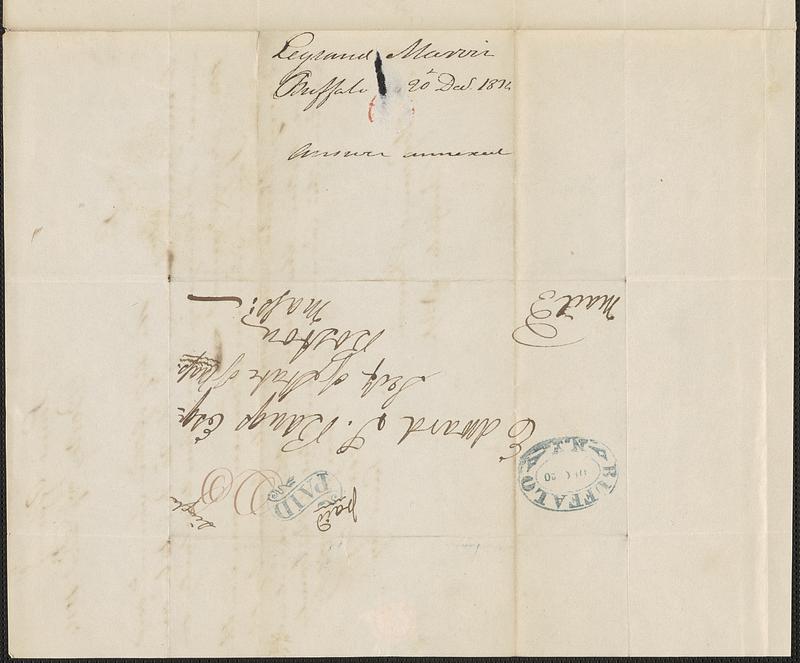 Legrand Marvin
Buffalo 20 Dec. 1834
Answer annexed
BUFFALO
N.Y.
DEC 20
paid
PAID
Single
Edward D. Bangs Esqr
Secy of State of Mass.
Boston
Mass:
Mail